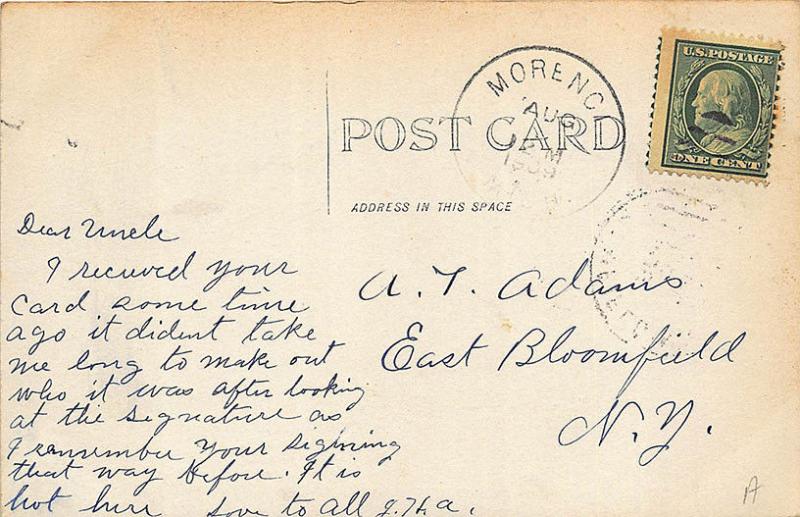 MORENC
AUG
M
1909
U.S. POSTAGE
ONE CENT
POST CARD
ADDRESS IN THIS SPACE
Dear Uncle
I recieved your
Card some time
ago it dident take
me long to make out
who it was after looking
at the signature as
I remember your signing
that way before. It is
hot here Love to all J.H.A.
A. T. Adams
East Bloomfield
N.Y.
A